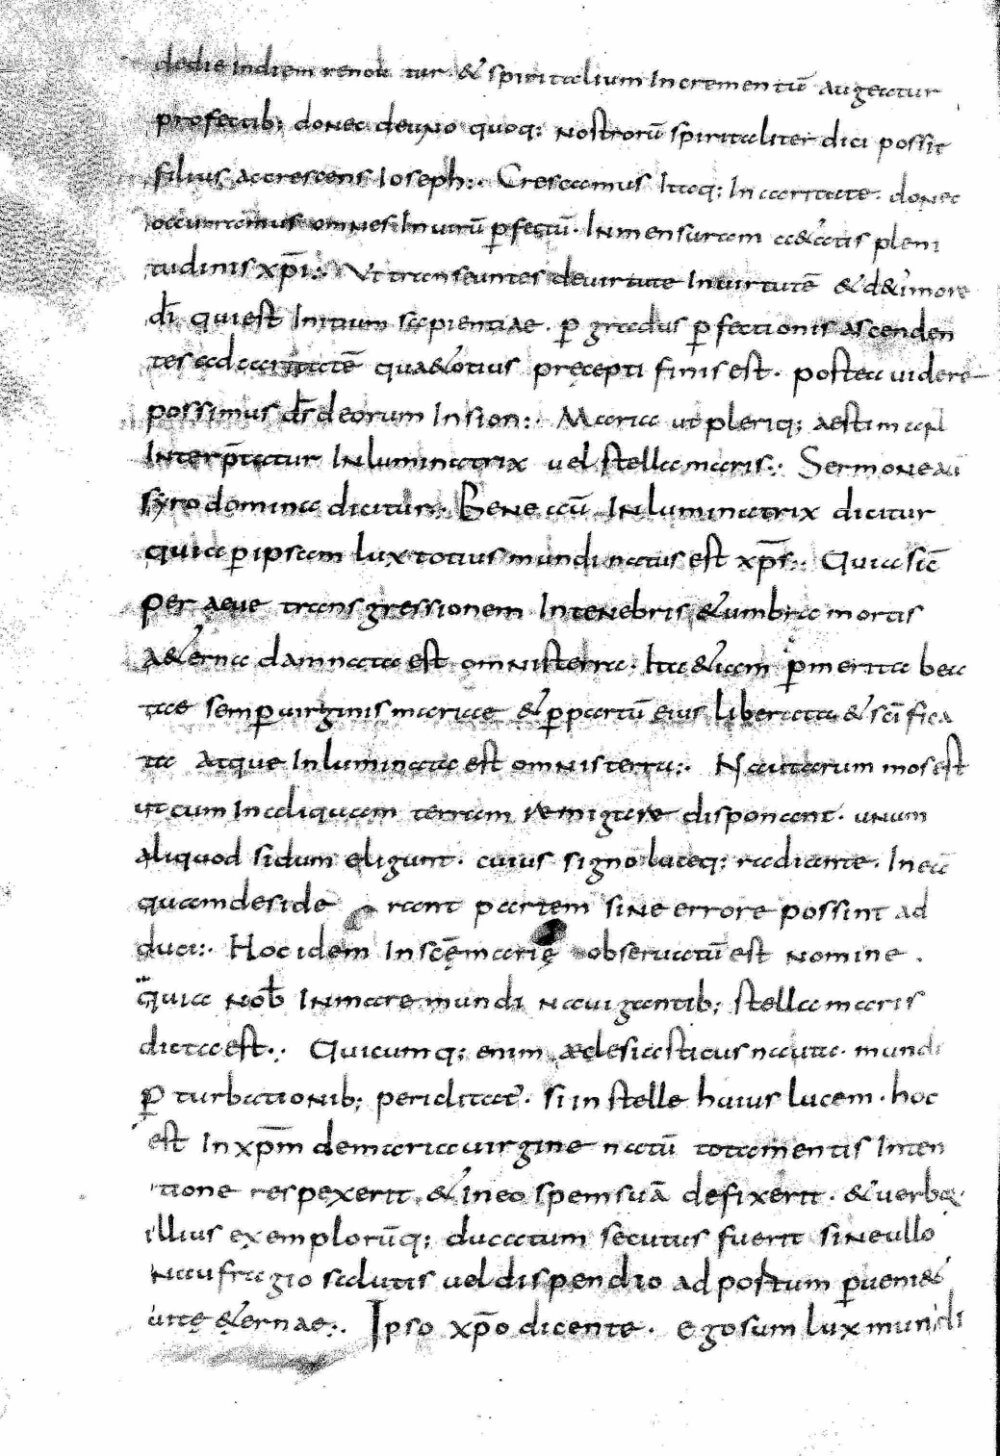 dedie Indiem renou tur & spiritalium Incrementū augeatur
profectib; donec deuno quoq; nostrorū spiritaliter dici possit
filius accrescens Ioseph:· Crescamus Itaq; In caritate · donec
occurramus omnes In uirū ꝑfectū · In mensuram aetatis pleni
tudinis xp̄i:· Vt transeuntes deuirtute In uirtutē & d&imore
dī qui est Initium sapientiae · ꝑ gradus ꝑfectionis ascenden
tes ad caritatē quae totius precepti finis est · postea uidere
possimus dſ̄ deorum In sion:· Maria ut pleriq; aestiman
Interp̄tatur Inluminatrix uel stella maris:· Sermone aū
syro domina dicitur:· Bene aū Inluminatrix dicitur
quia ꝑ ipsam lux totius mundi natus est xp̄s:· Quia sic̄
per aeue transgressionem In tenebris & umbra mortis
a&erna damnata est omnis terra · Ita &iam ꝑ merita bea
tae semꝑ uirginis mariae & ꝑ partū eius liberata & sc̄ifica
ta atque Inluminata est omnis terra:· Nautarum mos est
ut cum In aliquam terram remigare disponant · unum
aliquod sidum eligunt · cuius signo luceq; radiante · In eā
quam deside rant partem sine errore possint ad
duci:· Hoc idem In scę̄ marię obseruatū est nomine ·
quia nob̄ In mare mundi nauigantib; stella maris
dicta est:· Quicumq; enim æclesiasticus nauta · mundi
ꝑ turbationib; periclitat̄ · si in stelle huius lucem · hoc
est In xp̄m demaria uirgine natū tota mentis Inten
tione respexerit & In eo spem suā defixerit · & uerboꝝ
illius exemplorūq; ducatum secutus fuerit sine ullo
naufragio salutis uel dispendio ad portum ꝑueni&
uitę &ernae:· Ipso xp̄o dicente · ego sum lux mundi